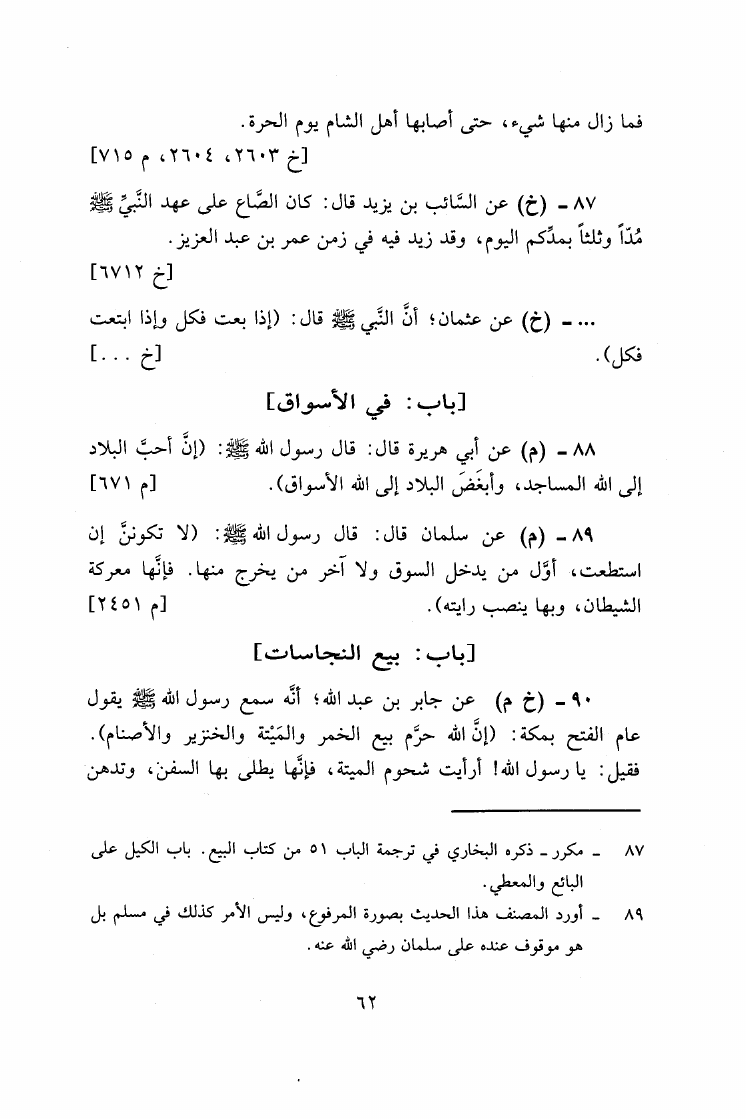 فما زال منها شيء، حتى أصابها أهل الشام يوم الحرة.
[خ ٢٦٠٣، ٢٦٠٤، م ٧١٥]
٨٧ ـ (خ) عن السَّائب بن يزيد قال: كان الصَّاع على عهد النَّبيِّ ﷺ
مُدّاً وثلثاً بمدِّكم اليوم، وقد زيد فيه في زمن عمر بن عبد العزيز.
[خ ٦٧١٢]
... ـ (خ) عن عثمان؛ أنَّ النَّبي ﷺ قال: (إذا بعت فكل وإذا ابتعت
فكل). [خ ...]
[باب: في الأسواق]
٨٨ ـ (م) عن أبي هريرة قال: قال رسول الله ﷺ: (إنَّ أحبَّ البلاد
إلى الله المساجد، وأبغَضَ البلاد إلى الله الأسواق). [م ٦٧١]
٨٩ ـ (م) عن سلمان قال: قال رسول الله ﷺ: (لا تكوننَّ إن
استطعت، أوَّل من يدخل السوق ولا آخر من يخرج منها. فإنَّها معركة
الشيطان، وبها ينصب رايته). [م ٢٤٥١]
[باب: بيع النجاسات]
٩٠ ـ (خ م) عن جابر بن عبد الله؛ أنَّه سمع رسول الله ﷺ يقول
عام الفتح بمكة: (إنَّ الله حرَّم بيع الخمر والمَيْتة والخنزير والأصنام).
فقيل: يا رسول الله! أرأيت شحوم الميتة، فإنَّها يطلى بها السفن، وتدهن
٨٧ ـ مكرر ـ ذكره البخاري في ترجمة الباب ٥١ من كتاب البيع. باب الكيل على
البائع والمعطي.
٨٩ ـ أورد المصنف هذا الحديث بصورة المرفوع، وليس الأمر كذلك في مسلم بل
هو موقوف عنده على سلمان رضي الله عنه.
٦٢